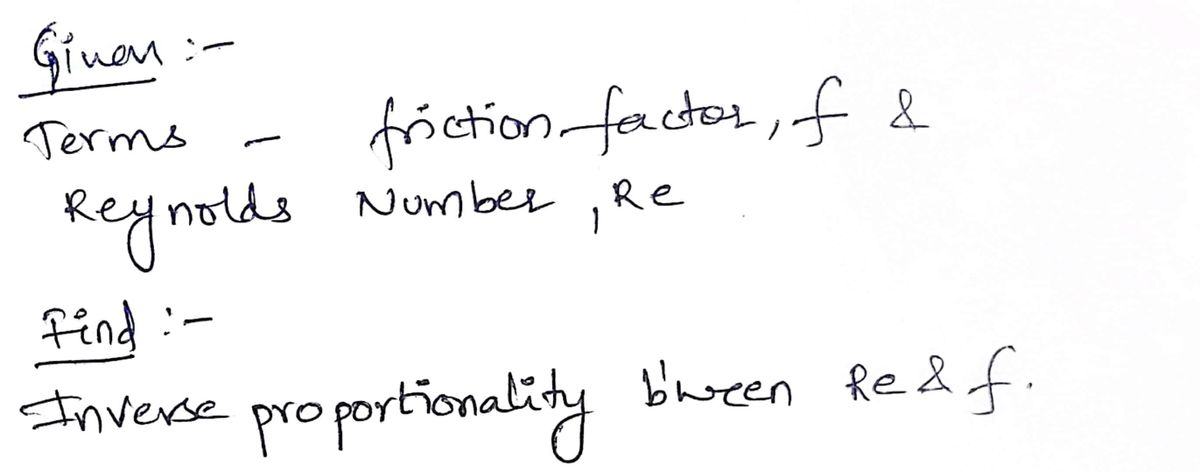 Given :-
Terms - friction factor, f &
Reynolds Number, Re
Find :-
Inverse proportionality b'ween Re & f.